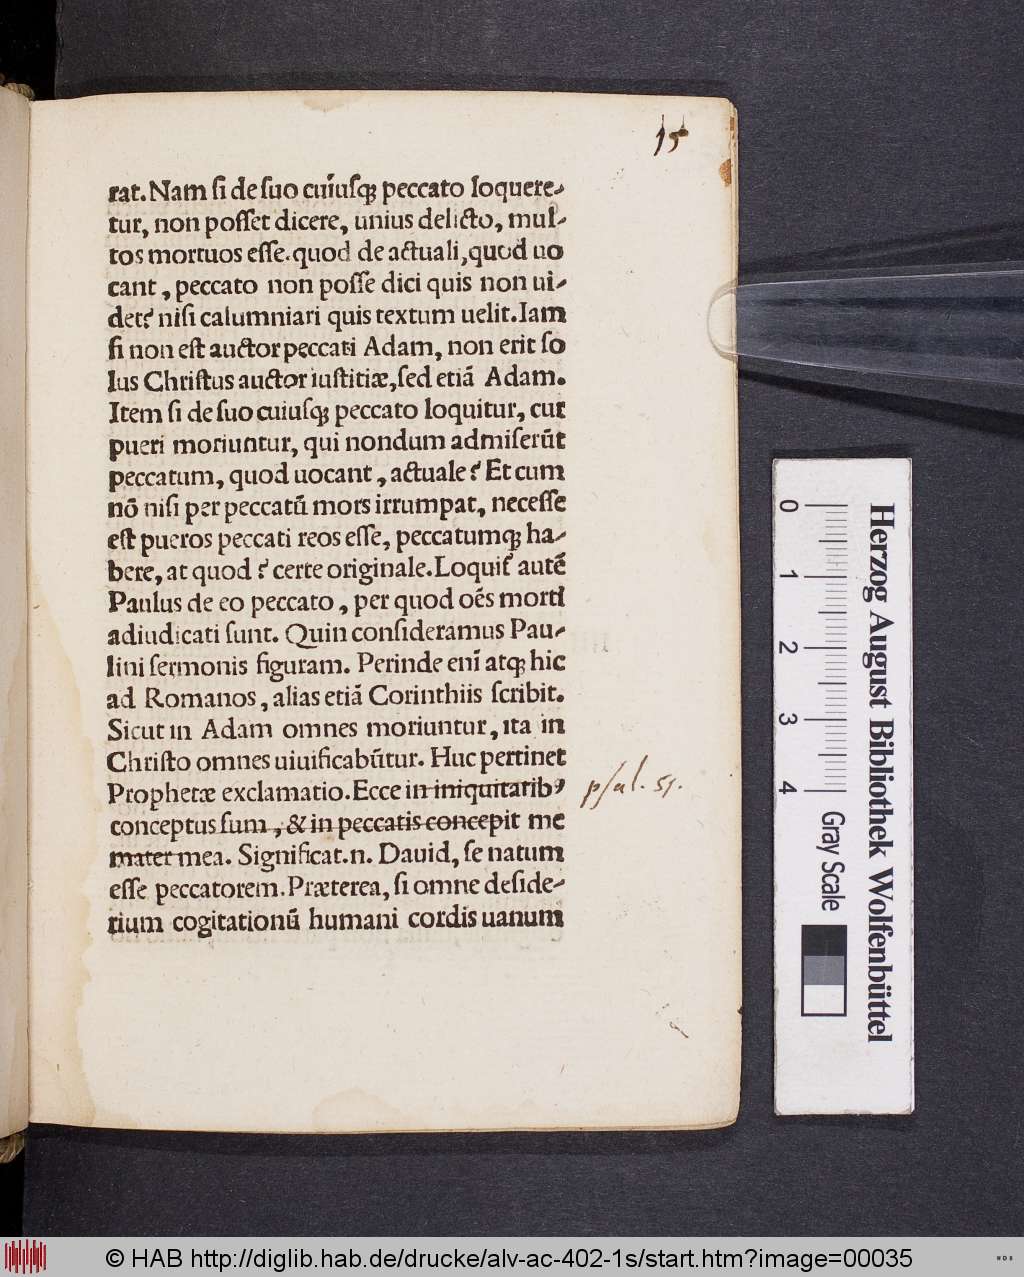 15
rat. Nam ſi de ſuo cuiuſqꝫ peccato loquere-
tur, non poſſet dicere, unius delicto, mul-
tos mortuos eſſe. quod de actuali, quod uo
cant, peccato non poſſe dici quis non ui-
det? niſi calumniari quis textum uelit. Iam
ſi non eſt auctor peccati Adam, non erit ſo
lus Chriſtus auctor iuſtitiæ, ſed etiã Adam.
Item ſi de ſuo cuiuſqꝫ peccato loquitur, cur
pueri moriuntur, qui nondum admiſerũt
peccatum, quod uocant, actuale? Et cum
nõ niſi per peccatũ mors irrumpat, neceſſe
eſt pueros peccati reos eſſe, peccatumqꝫ ha-
bere, at quod? certe originale. Loquit᷑ autẽ
Paulus de eo peccato, per quod oẽs morti
adiudicati ſunt. Quin conſideramus Pau-
lini ſermonis figuram. Perinde enĩ atqꝫ hic
ad Romanos, alias etiã Corinthiis ſcribit.
Sicut in Adam omnes moriuntur, ita in
Chriſto omnes uiuificabũtur. Huc pertinet
Prophetæ exclamatio. Ecce in iniquitatibꝰ
psal. 51.
conceptus ſum, & in peccatis concepit me
mater mea. Significat .n. Dauid, ſe natum
eſſe peccatorem. Præterea, ſi omne deſide-
rium cogitationũ humani cordis uanum
Herzog August Bibliothek Wolfenbüttel
0 1 2 3 4 Gray Scale
© HAB http://diglib.hab.de/drucke/alv-ac-402-1s/start.htm?image=00035